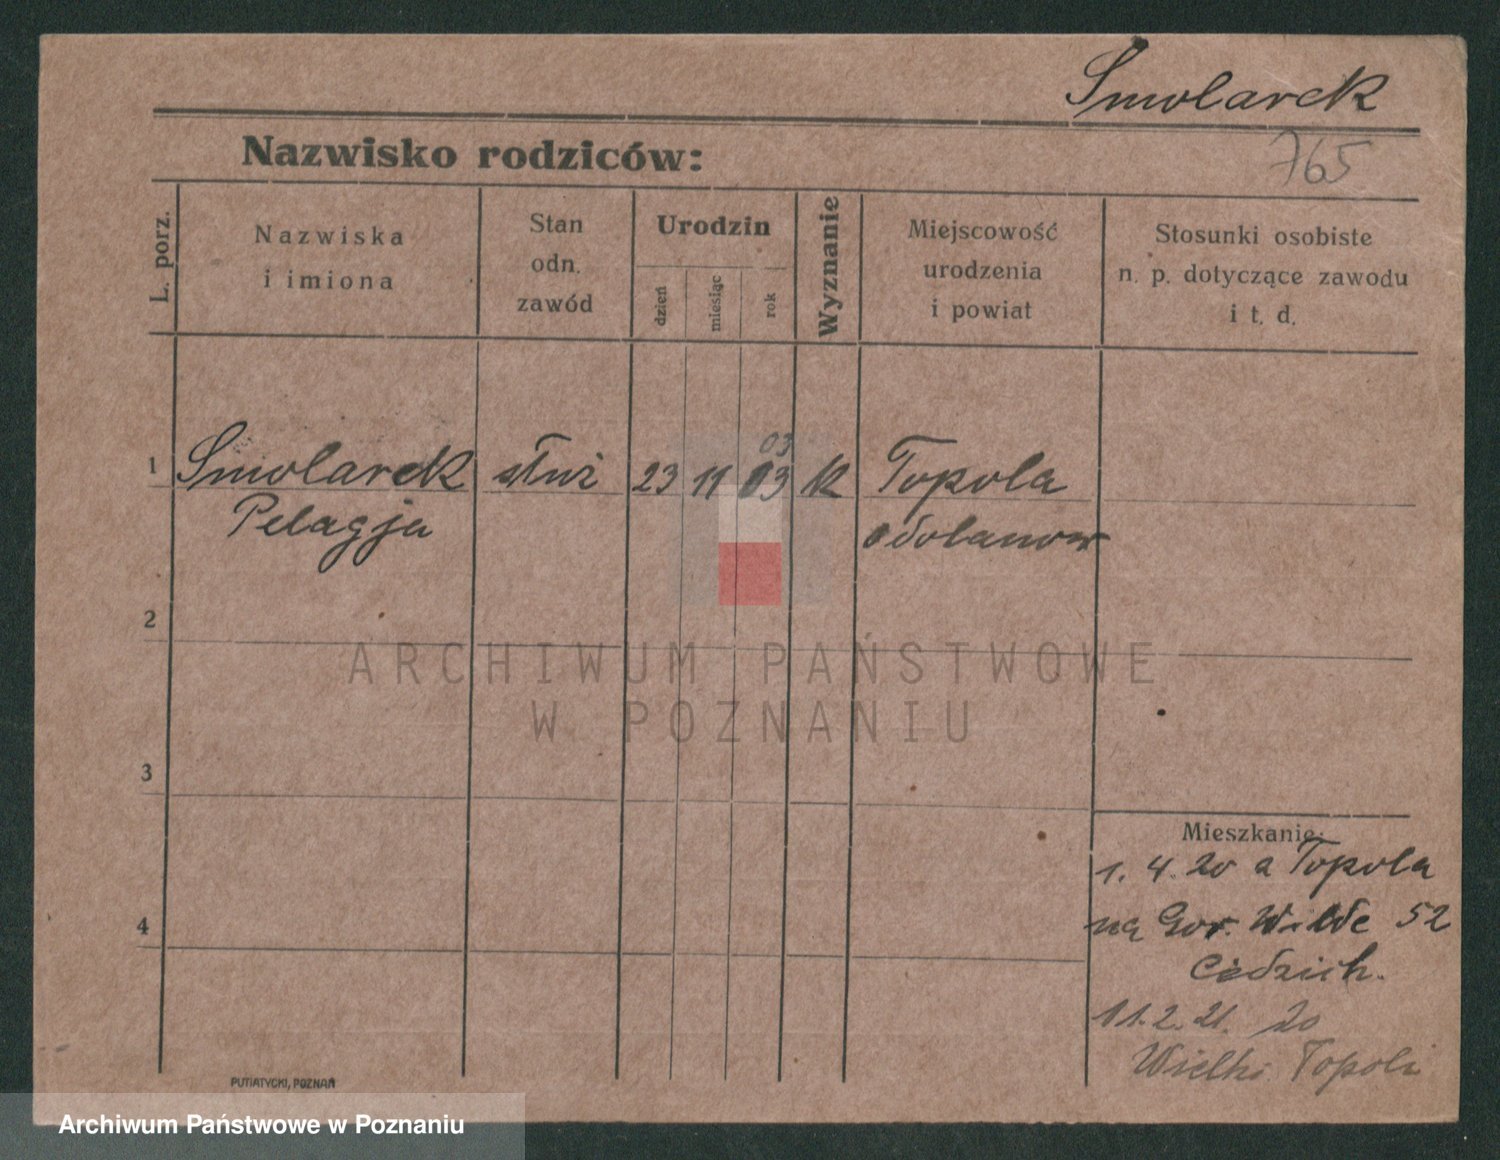 Smolarek
765
Nazwisko rodziców:
L. porz.
Nazwiska
i imiona
Stan
odn.
zawód
Urodzin
dzień
miesiąc
rok
Wyznanie
Miejscowość
urodzenia
i powiat
Stosunki osobiste
n. p. dotyczące zawodu
i t. d.
03
1 Smolarek służ 23 11 03 k Topola
Pelagja odolanow
2
ARCHIWUM PAŃSTWOWE
W POZNANIU
3
Mieszkanie:
1. 4. 20 a Topola
na Gor. Wilde 52
4
11.2.21. zo
Wielki Topoli
PUTIATYCKI, POZNAŃ
Archiwum Państwowe w Poznaniu